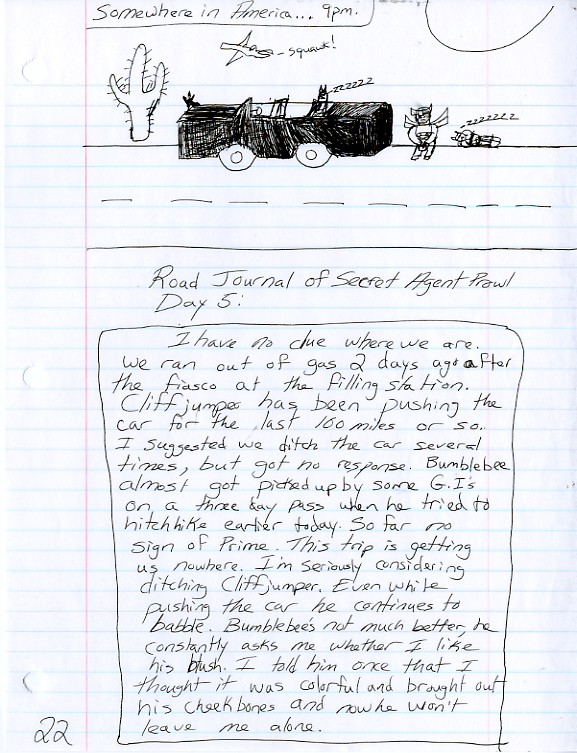 Somewhere in America... 9pm.
- squawk!
zzzzzz
- zzzzzzz
Road Journal of Secret Agent Prowl
Day 5:
I have no clue where we are.
We ran out of gas 2 days ago after
the fiasco at the filling station.
Cliffjumper has been pushing the
car for the last 100 miles or so.
I suggested we ditch the car several
times, but got no response. Bumblebee
almost got picked up by some G.I's
on a three day pass when he tried to
hitchhike earlier today. So far no
sign of Prime. This trip is getting
us nowhere. I'm seriously considering
ditching Cliffjumper. Even while
pushing the car he continues to
babble. Bumblebee's not much better, he
constantly asks me whether I like
his blush. I told him once that I
thought it was colorful and brought out
his cheekbones and now he won't
leave me alone.
22